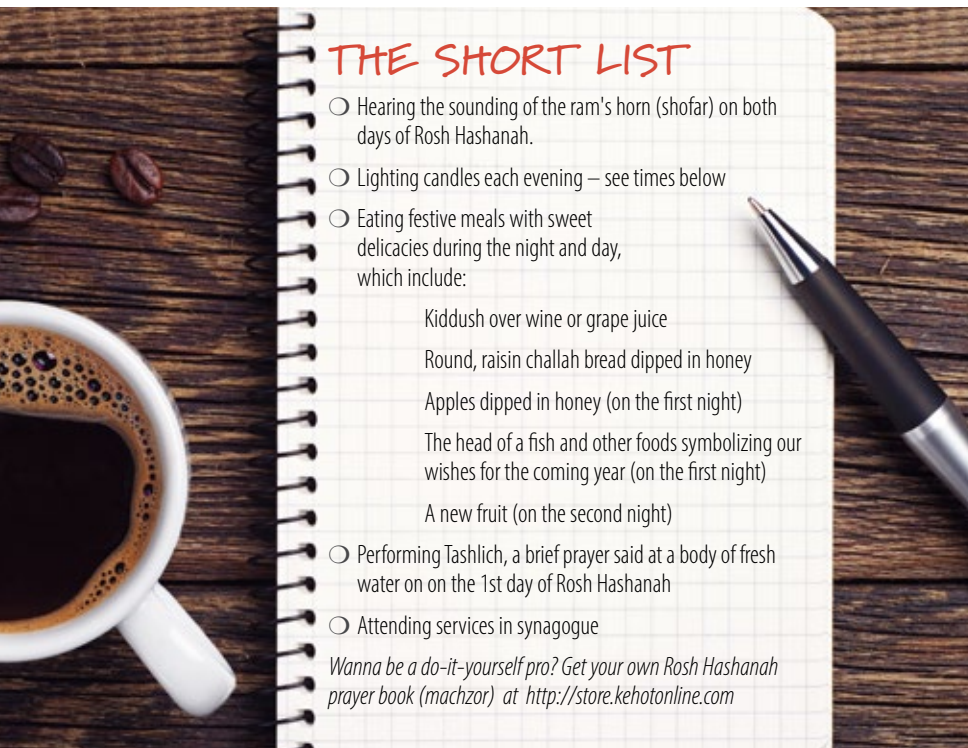 THE SHORT LIST
❍ Hearing the sounding of the ram's horn (shofar) on both
days of Rosh Hashanah.
❍ Lighting candles each evening – see times below
❍ Eating festive meals with sweet
delicacies during the night and day,
which include:
Kiddush over wine or grape juice
Round, raisin challah bread dipped in honey
Apples dipped in honey (on the first night)
The head of a fish and other foods symbolizing our
wishes for the coming year (on the first night)
A new fruit (on the second night)
❍ Performing Tashlich, a brief prayer said at a body of fresh
water on on the 1st day of Rosh Hashanah
❍ Attending services in synagogue
Wanna be a do-it-yourself pro? Get your own Rosh Hashanah
prayer book (machzor) at http://store.kehotonline.com